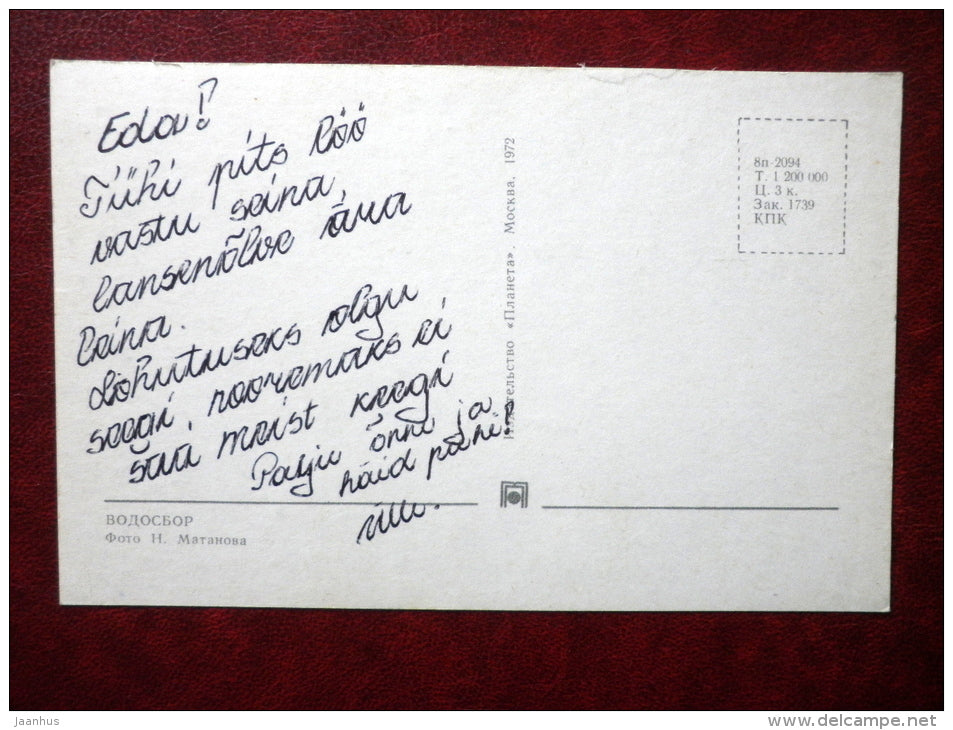 Eda!
Tühi pits löö
vastu seina,
ära
leina.
Lohutuseks olgu
seegi, nooremaks ei
saa meist keegi
Palju õnne ja
häid päevi!
Ülle.
ВОДОСБОР
Фото Н. Матанова
Издательство «Планета». Москва, 1972
8п-2094
Т. 1 200 000
Ц. 3 к.
Зак. 1739
КПК
Jaanhus
www.delcampe.net